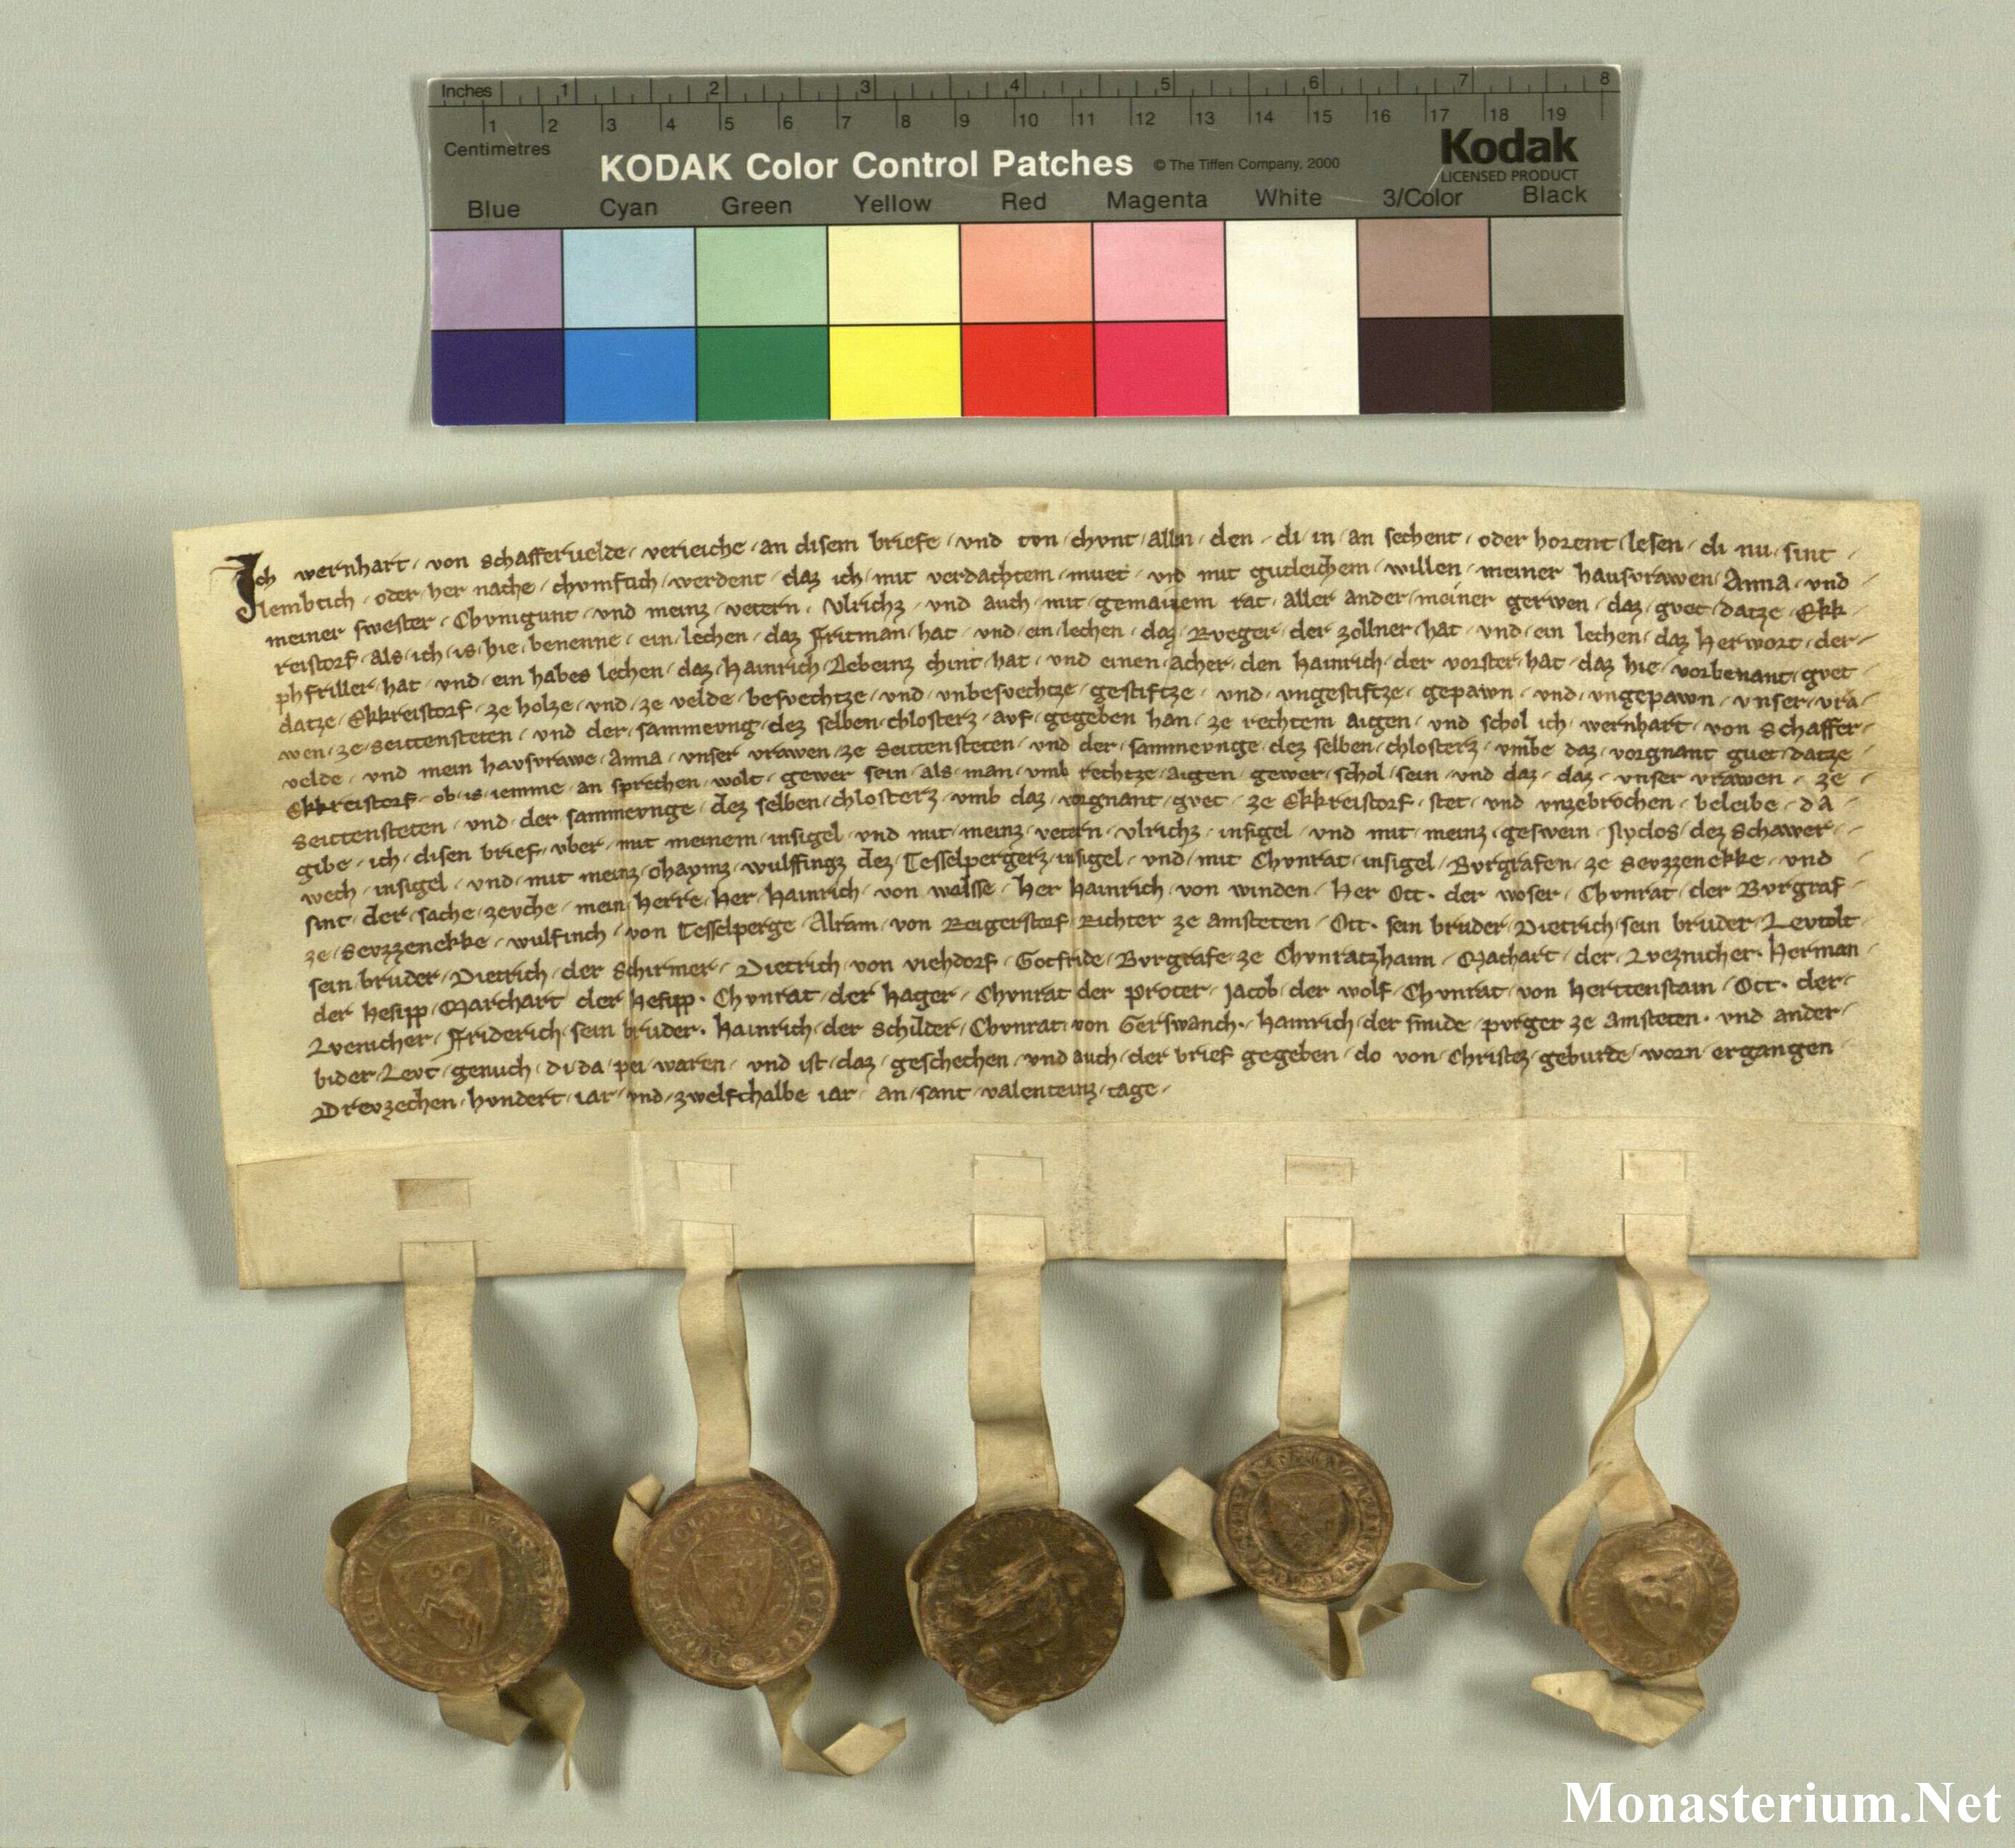 Inches 1 2 3 4 5 6 7 8
1 2 3 4 5 6 7 8 9 10 11 12 13 14 15 16 17 18 19
Centimetres
KODAK Color Control Patches © The Tiffen Company, 2000 Kodak
LICENSED PRODUCT
Blue Cyan Green Yellow Red Magenta White 3/Color Black
Ich wernhart von Schafferuelde verieiche an disem briefe und tvn chvnt alln den di in an sechent oder horent lesen di nu sint
lembtich oder her nache chvmftich werdent daz ich mit verdachtem muet vnd mit gutleichem willen meiner hausvrawen Anna vnd
meiner swester Chvnigunt vnd meinz vetern Vlrichz vnd auch mit gemainem rat aller ander meiner gerwen daz gvet datze Ekk
reistorf als ich is hie benenne ein lechen daz Fritman hat vnd ein lechen daz Rveger der zollner hat vnd ein lechen daz Herwort der
phfriller hat vnd ein habes lechen daz Hainrich Lebeinz chint hat vnd einen acher den Hainrich der vorster hat daz hie vorbenant gvet
datze Ekkreistorf ze holze vnd ze velde besvechtze vnd vnbesvechtze gestiftze vnd vngestiftze gepawn vnd vngepawn vnser vra
wen ze Seittensteten vnd der sammevng dez selben chlosterz avf gegeben han ze rechtem aigen vnd schol ich wernhart von Schaffer
velde vnd mein havsvrawe Anna vnser vrawen ze Seittensteten vnd der sammevnge dez selben chlosterz vmbe daz vorgnant guet datze
Ekkreistorf ob is iemme an sprechen wolt gewer sein als man vmb rechtze aigen gewer schol sein vnd daz daz vnser vrawen ze
Seittensteten vnd der sammevnge dez selben chlosterz vmb daz vorgnant gvet ze Ekkreistorf stet vnd vnzebrochen beleibe da
gibe ich disen brief vber mit meinem insigel vnd mit meinz vetern Vlrichz insigel vnd mit meinz geswein Nyclos dez Schawer
wech insigel vnd mit meinz ohaymz wulffingz dez Tesselpergerz insigel vnd mit Chvnrat insigel Bvrgrafen ze Sevzzenekke vnd
sint der sache zevche mein herre Her Hainrich von walsse Her Hainrich von winden Her Ott der woser Chvnrat der Bvrgraf
ze Sevzzenekke wulfinch von Tesselperge Alram von Reigerstorf Richter ze amsteten Ott sein bruder Dietrich sein bruder Levtolt
sein bruder Dietrich der Schirmer Dietrich von viehdorf Gotfride Bvrgrafe ze Chvnratzhaim Machart der Lveznicher Herman
der Hesipp Marchart der Hesipp Chvnrat der Hager Chvnrat der proter Jacob der wolf Chvnrat von Herttenstain Ott der
Lvenicher Friderich sein bruder Hainrich der Schilder Chvnrat von Gerswanch Hainrich der smide pvrger ze Amsteten vnd ander
bider Levt genuch di da pei waren vnd ist daz geschechen vnd auch der brief gegeben do von Christez geburde worn ergangen
Drevzechen hvndert iar vnd zwelfthalbe iar an sant valenteinz tage
Monasterium.Net